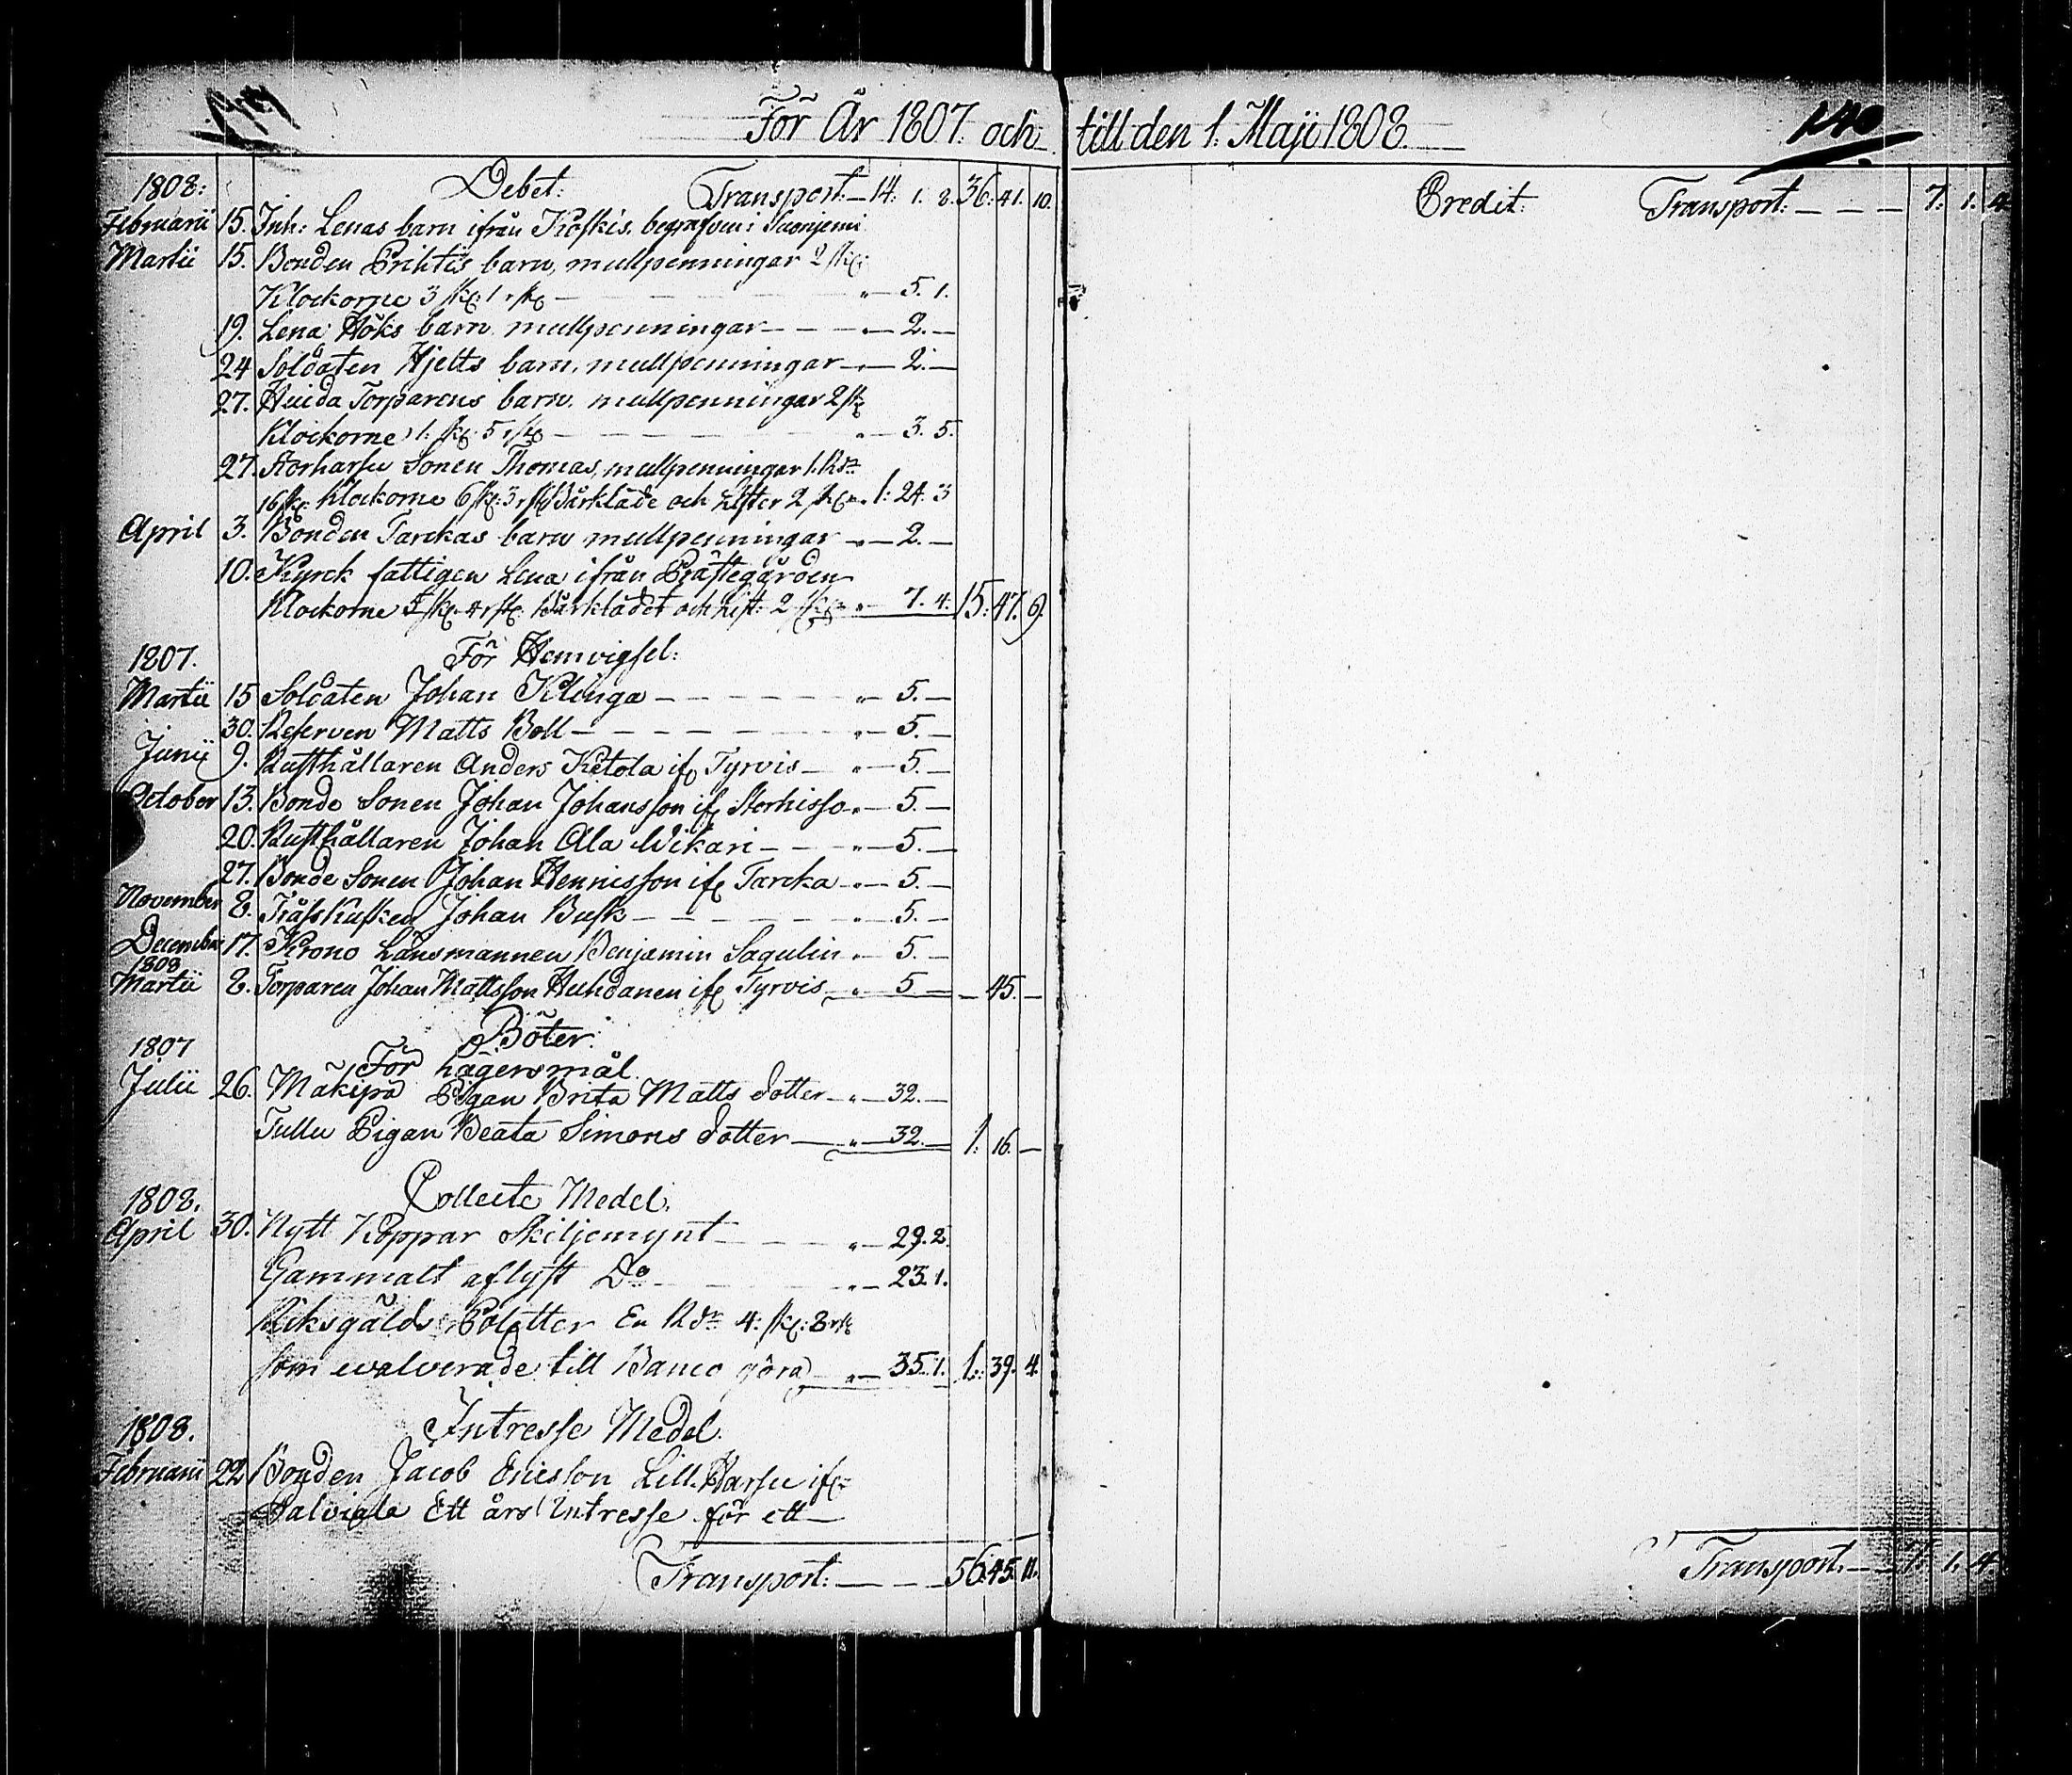 För År 1807. och till den 1. Maji 1808.
140
1808: Debet: Transport: — 14. 1. 8. 36. 41. 10.
Februarii 15. Inh: Lenas barn ifrån Koskis, begrafven i
Martii 15. Bonden Prihtis barn, mullpenningar 2 sk:
Klockorne 3 sk: 1 rst — — — „ — 5. 1.
19. Lena Höks barn mullpenningar — — „ — 2. —
24 Soldaten Hjelts barn, mullpenningar — „ — 2. —
27. Huida Torparens barn. mullpenningar 2 sk
Klockorne 1: sk: 5 rst — — — „ — 3. 5.
27. Storharsu Sonen Thomas, mullpenningar 1. Rdr
16 sk: Klockorne 6 sk: 3 rst Bårkläde och Lister 2 sk „ 1: 24. 3
April 3. Bonden Tarckas barn mullpenningar — „ — 2. —
10. Kyrck fattigen Lena ifrån Prästegården
Klockorne 5 sk: 4 rst: Bårklädet och List: 2 sk: „ — 7. 4. 15: 47. 9.
1807. För Hemvigsel:
Martii 15 Soldaten Johan Klinga — — — „ — 5. —
30. Reserven Matts Boll — — — „ — 5. —
Junii 9. Rusthållaren Anders Ketola if: Tyrvis — „ — 5. —
October 13. Bonde Sonen Johan Johansson if: Storhisso „ — 5. —
20. Rusthållaren Johan Ala Wikari — — „ — 5. —
27. Bonde Sonen Johan Hennisson if: Tarcka — „ — 5. —
November 8. Johan Busk — — — „ — 5. —
December 17. Krono Länsmannen Benjamin Sagulin „ — 5. —
1808
Martii 8. Torparen Johan Mattsson Huhdanen if: Tyrvis — „ — 5 — — 45. —
Böter:
1807 För Lägersmål
Julii 26. Mäkipä Pigan Brita Matts dotter — „ — 32. —
Tullu Pigan Beata Simons dotter — „ — 32. — 1: 16. —
1808. Collecte Medel.
April 30. Nytt Koppar Skiljemynt — — „ — 29. 2.
Gammalt aflyst Do — — „ — 23. 1.
Riksgälds Poletter En Rdr 4: sk: 8 rst
som evalverade till Banco göra — „ — 35. 1. 1: 39. 4.
1808. Intresse Medel.
Februarii 22 Bonden Jacob Ericsson Lill-Harsu if:
Salviala Ett års Intresse för ett —
Transport: — — — 56. 45. 11.
Credit: Transport: — — — 7. 1. 4
Transport. — — 7. 1. 4.